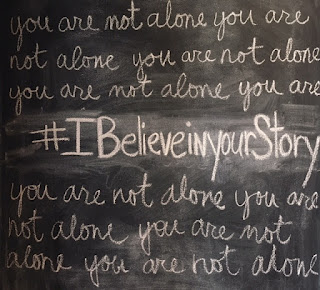 you are not alone you are
not alone you are not alone
you are not alone you are
#IBelieveinyourStory
you are not alone you are
not alone you are not
alone you are not alone